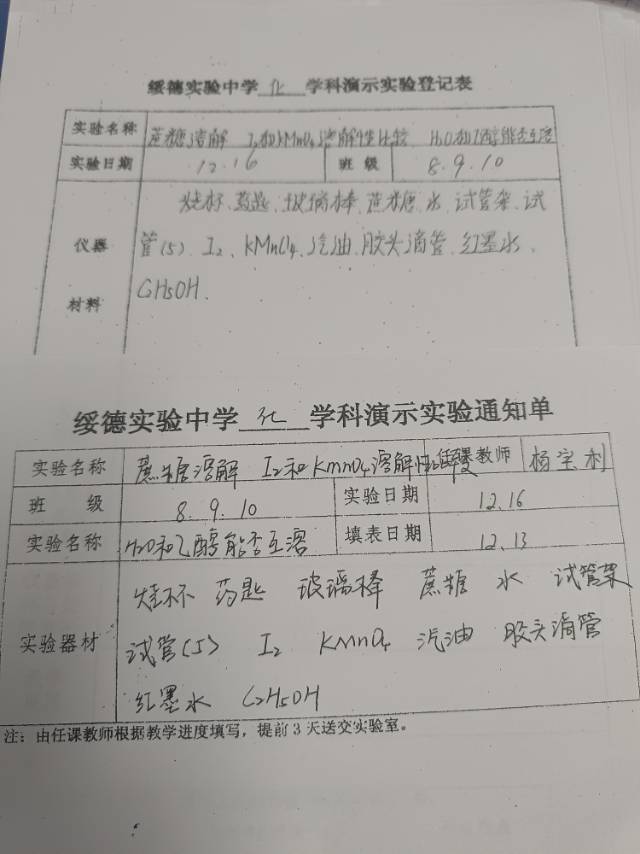 绥德实验中学 化 学科演示实验登记表
实验名称 蔗糖溶解 I2和KMnO4溶解性比较 H2O和乙醇能否互溶
实验日期 12.16 班 级 8.9.10
仪器
材料
烧杯、药匙、玻璃棒、蔗糖、水、试管架、试
管(5)、I2、KMnO4、汽油、胶头滴管、红墨水、
C2H5OH.
绥德实验中学 化 学科演示实验通知单
实验名称 蔗糖溶解 I2和KmnO4溶解性 任课教师 杨宝利
班 级 8.9.10 实验日期 12.16
实验名称 H2O和乙醇能否互溶 填表日期 12.13
实验器材
烧杯 药匙 玻璃棒 蔗糖 水 试管架
试管(5) I2 KMnO4 汽油 胶头滴管
红墨水 C2H5OH
注：由任课教师根据教学进度填写，提前3天送交实验室。